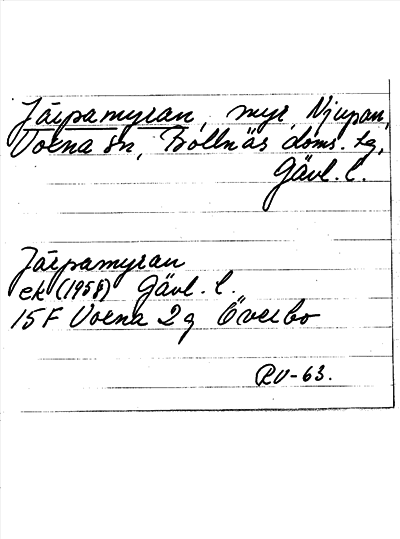 Järpamyran, myr, Njupan,
Voxna sn, Bollnäs doms. tg,
Gävl. l.
Järpamyran
ek (1958) Gävl. l.
15F Voxna 2g Överbo
RU-63.